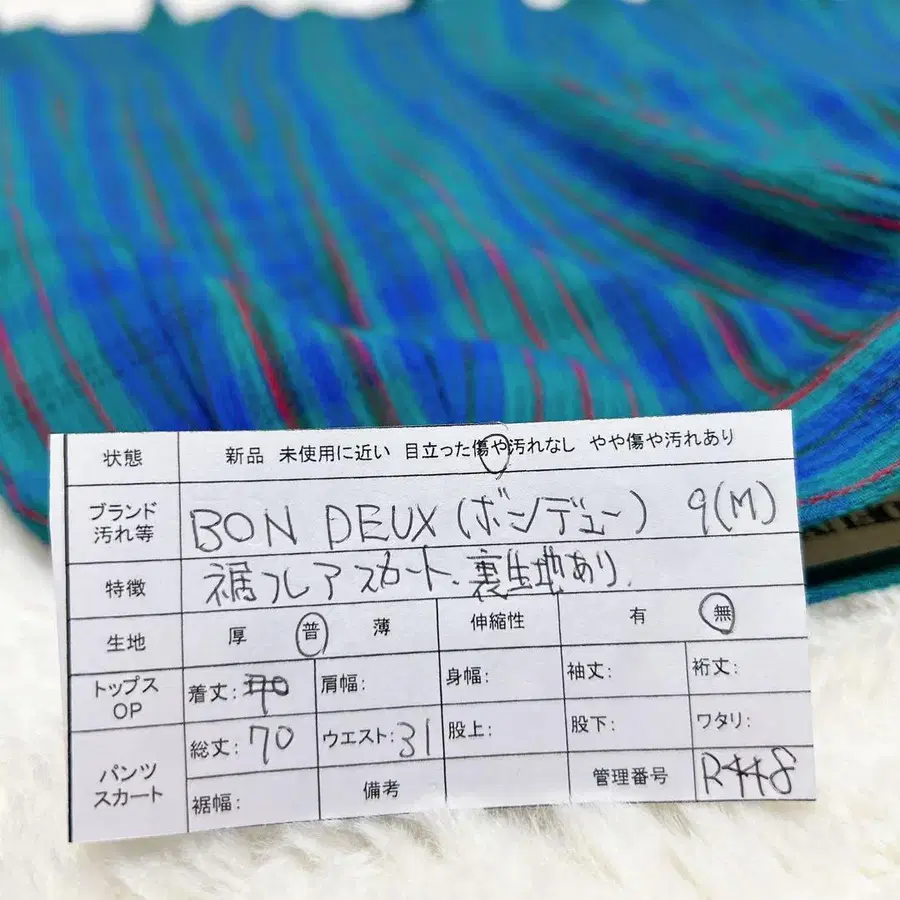 状態 新品 未使用に近い 目立った傷や汚れなし やや傷や汚れあり
ブランド 汚れ等 BON DEUX (ボンデュー) 9(M)
特徴 裾フレアスカート、裏生地あり、
生地 厚 普 薄 伸縮性 有 無
トップス OP 着丈: 70 肩幅: 身幅: 袖丈: 裄丈:
パンツ スカート 総丈: 70 ウエスト: 31 股上: 股下: ワタリ:
裾幅: 備考 管理番号